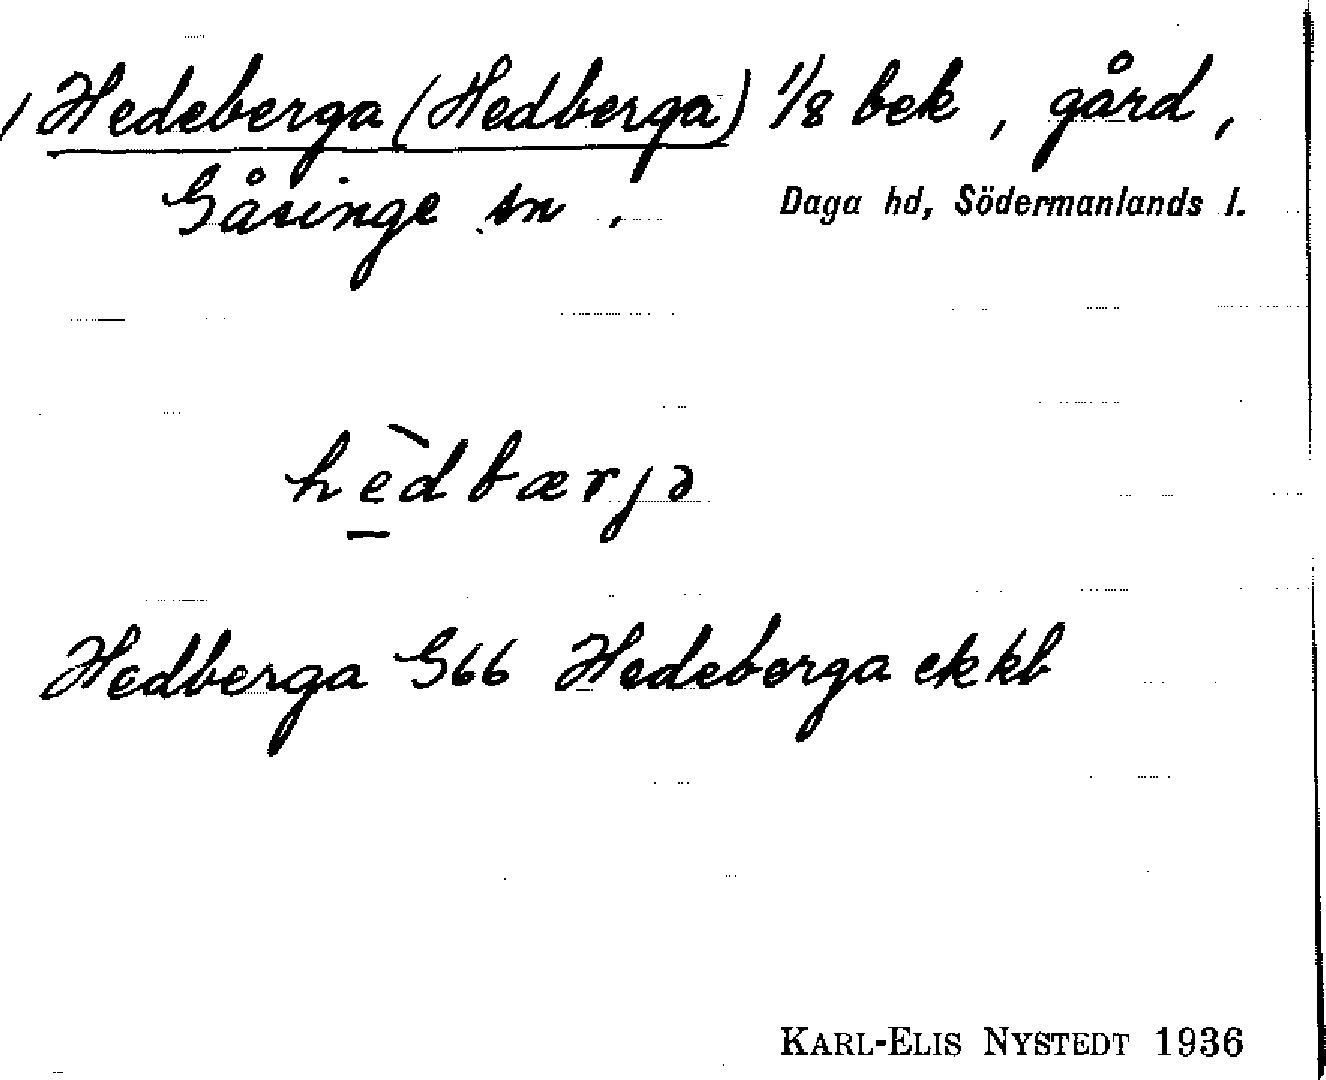 Hedeberga (Hedberga) 1/8 bek, gård,
Gåsinge sn. Daga hd, Södermanlands l.
hèdbærjə
Hedberga G66 Hedeberga ekkb
KARL-ELIS NYSTEDT 1936